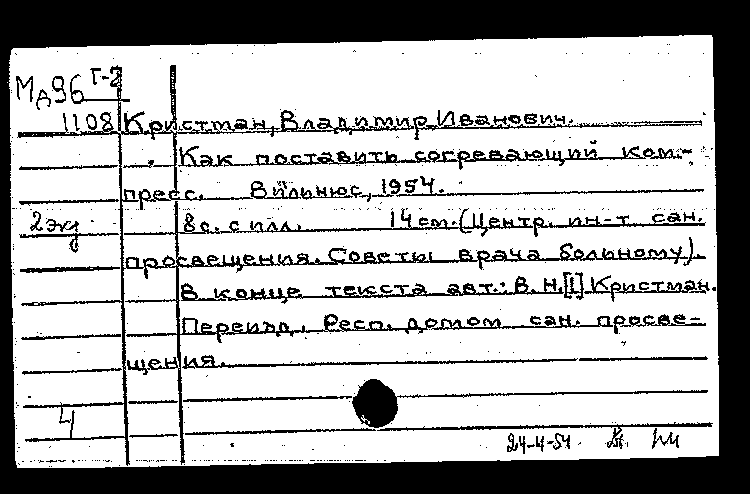 Мд96 Г-2
1108 Кристман, Владимир Иванович.
Как поставить согревающий ком-
пресс. Вильнюс, 1954.
2 экз 8с. с илл. 14 см. (Центр. ин-т сан.
просвещения. Советы врача больному).
В конце текста авт.: В. Н.[!] Кристман.
Переизд. Респ. домом сан. просве-
щения.
4
24-4-54.